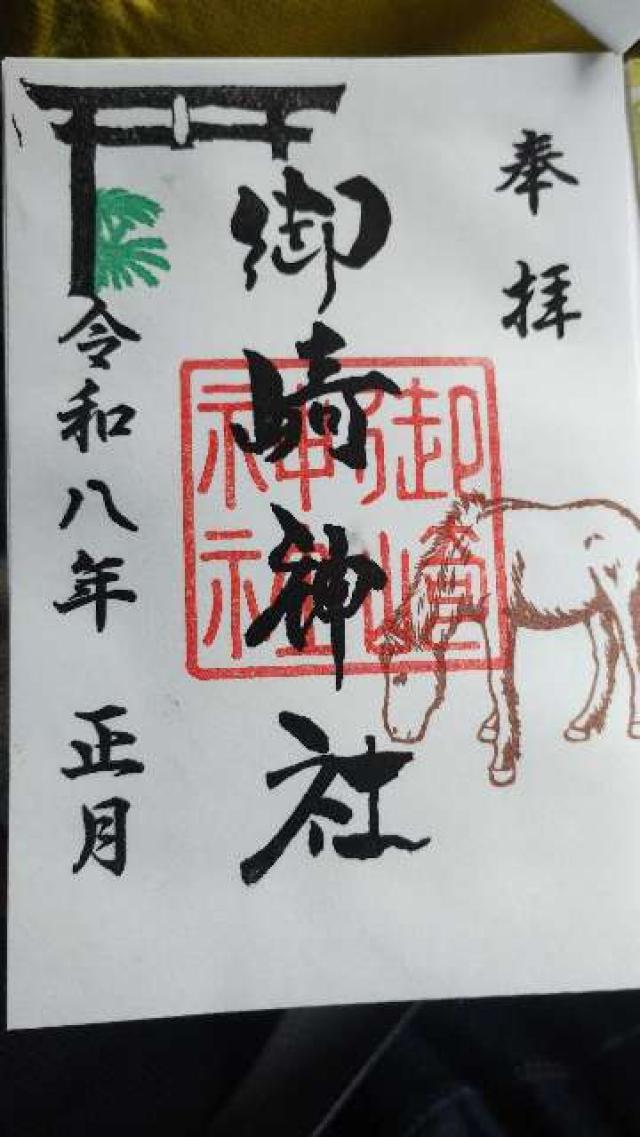 奉拝
御崎神社
御崎神社
令和八年 正月